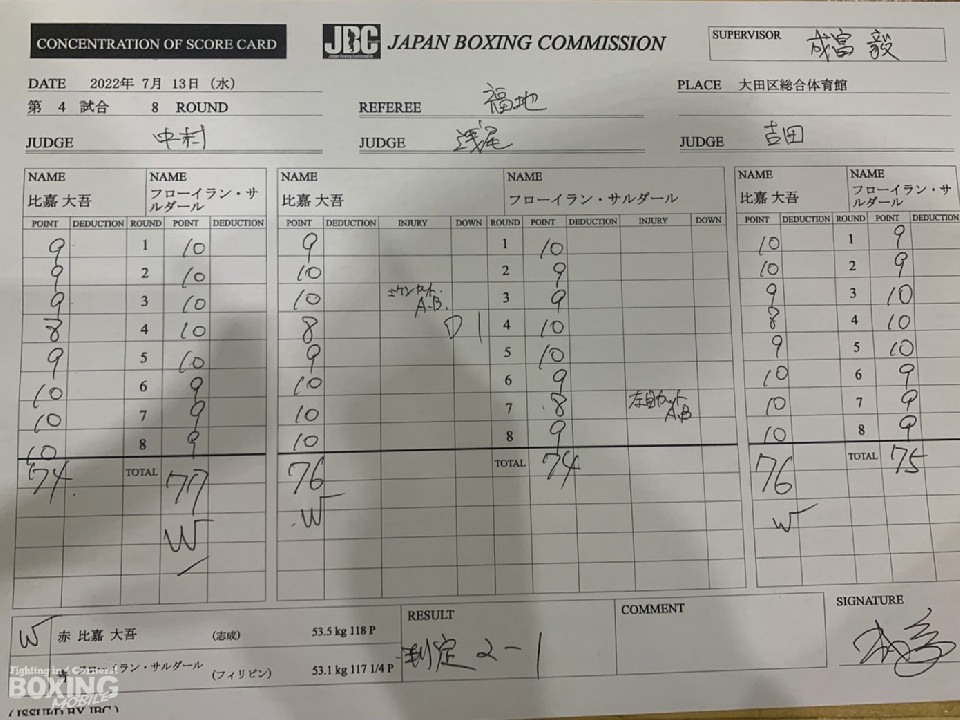 CONCENTRATION OF SCORE CARD
JBC JAPAN BOXING COMMISSION
SUPERVISOR 成富 毅
DATE 2022年 7月 13日 (水)
PLACE 大田区総合体育館
第 4 試合 8 ROUND
REFEREE 福地
JUDGE 中村
JUDGE 浅尾
JUDGE 吉田
NAME NAME NAME NAME NAME NAME
比嘉 大吾 フローイラン・サルダール 比嘉 大吾 フローイラン・サルダール 比嘉 大吾 フローイラン・サルダール
POINT DEDUCTION ROUND POINT DEDUCTION POINT DEDUCTION INJURY DOWN ROUND POINT DEDUCTION INJURY DOWN POINT DEDUCTION ROUND POINT DEDUCTION
9 1 10 9 1 10 10 1 9
9 2 10 10 2 9 10 2 9
9 3 10 10 A.B. 3 9 9 3 10
8 4 10 8 D 1 4 10 8 4 10
9 5 10 9 5 10 9 5 10
10 6 9 10 6 9 10 6 9
10 7 9 10 7 8 左目カット A.B 10 7 9
10 8 9 10 8 9 10 8 9
74 TOTAL 77 76 TOTAL 74 76 TOTAL 75
W W W
W 赤 比嘉 大吾 (志成) 53.5 kg 118 P
フローイラン・サルダール (フィリピン) 53.1 kg 117 1/4 P
RESULT
判定 2-1
COMMENT
SIGNATURE
Fighting in 4 Corners!
BOXING
MOBILE
(ISSUED BY JBC)